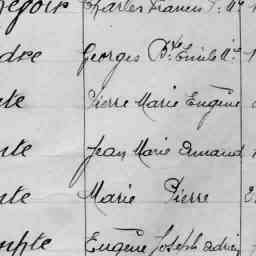 Charles Francis
dre Georges Bte Emile Mie
te Pierre Marie Eugène
nte Jean Marie Armand
te Marie Pierre
Eugène Joseph Adrien